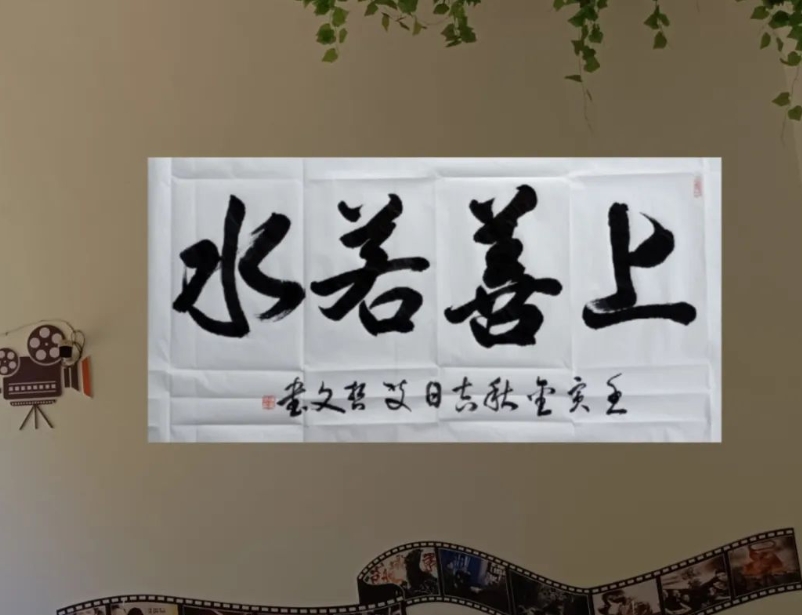 上善若水
壬寅金秋吉日艾哲文書